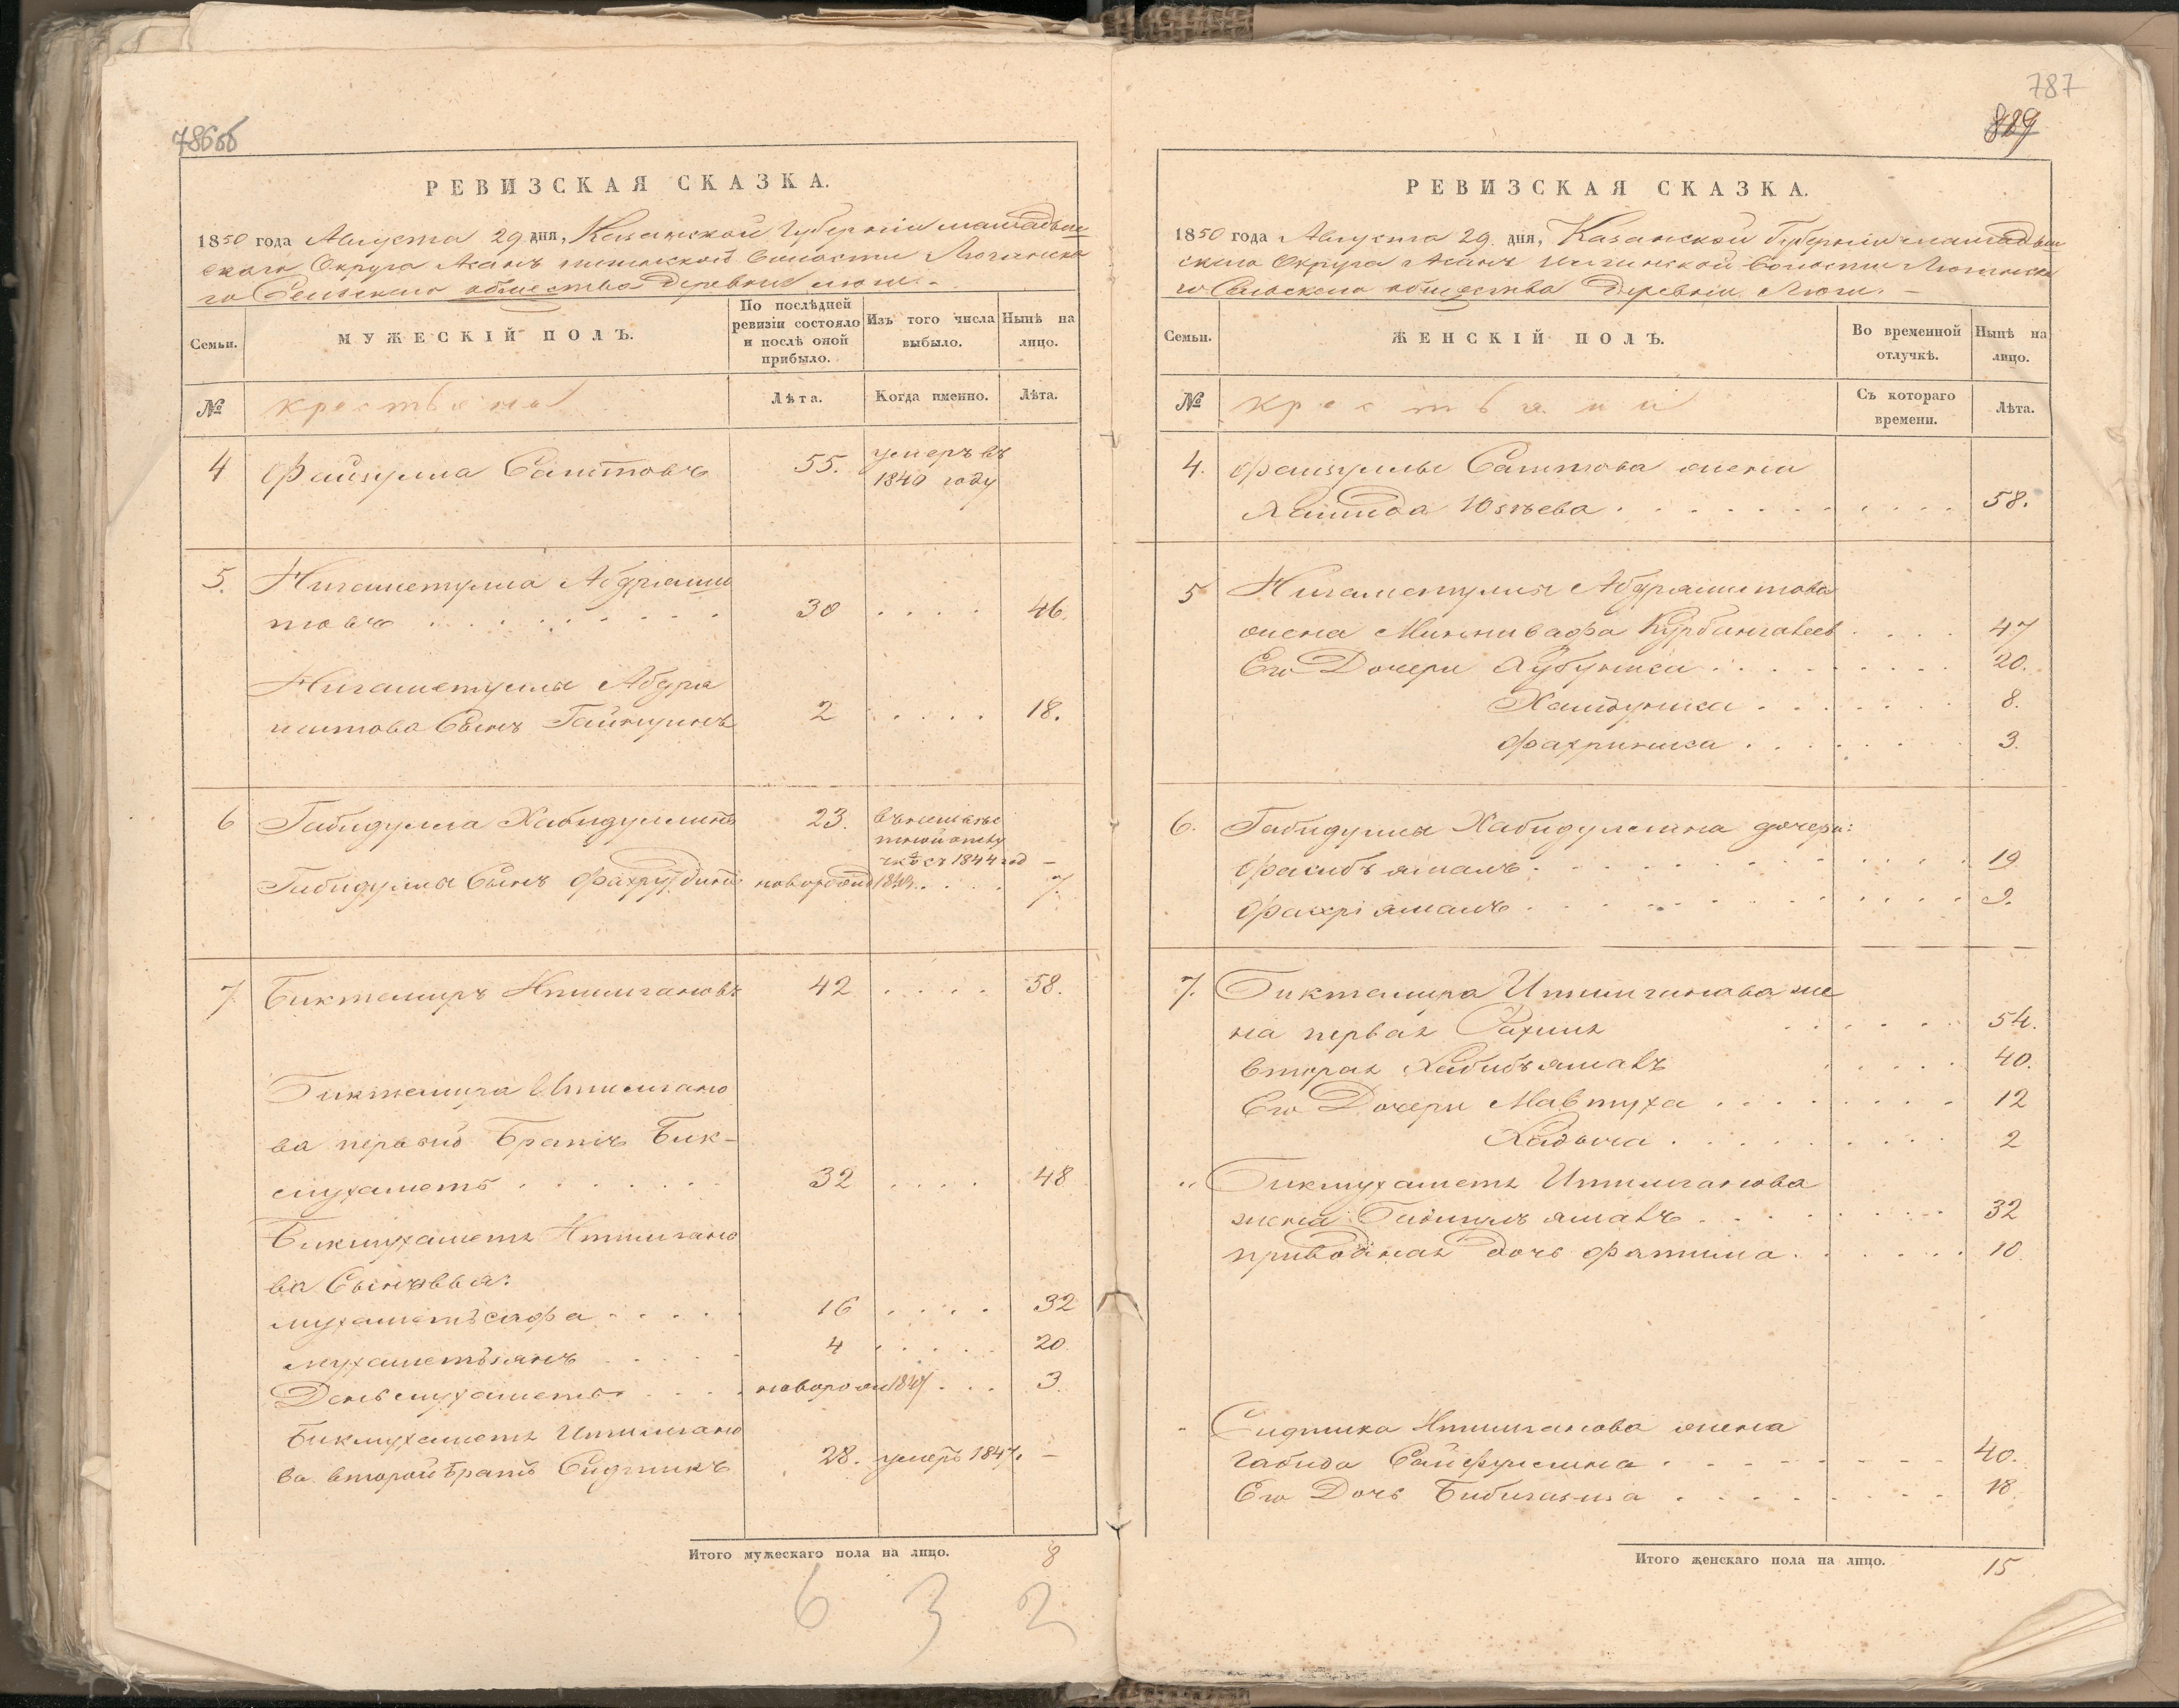 786 об
РЕВИЗСКАЯ СКАЗКА.
1850 года Августа 29 дня, Казанской Губернии мамадыш
скаго Округа волости
го Сельскаго общества Деревни
Семьи.
МУЖЕСКІЙ ПОЛЪ.
По послѣдней ревизіи состояло и послѣ оной прибыло.
Изъ того числа выбыло.
Нынѣ на лицо.
№
крестьяне
Лѣта.
Когда именно.
Лѣта.
4 Файзулла Саитовъ 55. умеръ въ
1840 году
5. Нигаметулла Абдряши
товъ 30 46.
Нигаметуллы Абдря
шитова Сынъ Гайнулинъ 2 18.
6 Габидулла Хабидуллинъ 23.
съ 1844 год –
Габидуллы Сынъ Фахрутдинъ новорожд 7.
7 Биктемиръ Итмигановъ 42 58.
Биктемира Итмигано
ва первый Братъ Бик-
мухаметъ 32 48
Бикмухаметя Итмигано
ва Сыновья:
мухаметьсафа 16 32
мухаметьянъ 4 20.
Деньмухаметь новорож 1847 3.
Бикмухаметя Итмигано
ва второй братъ Сидтикъ 28. умеръ 1847. –
Итого мужескаго пола на лицо. 8
6 3 2
787
889
РЕВИЗСКАЯ СКАЗКА.
1850 года Августа 29 дня, Казанской Губерніи мамадыш
скаго Округа волости
го Сельскаго общества Деревни
Семьи.
ЖЕНСКІЙ ПОЛЪ.
Во временной отлучкѣ.
Нынѣ на лицо.
№
крестьяне
Съ котораго времени.
Лѣта.
4. Файзуллы Саитова жена
Хамида Юзѣева 58.
5 Нигаметуллы Абдряшитова
жена Миннивафа Курбангалеев 47
Его Дочери Хубуниса 20.
Хамдуниса 8.
Фахриниса 3.
6. Габидуллы Хабидуллина дочери:
Фасибъямалъ 19
Фахріямалъ 9.
7. Биктемира Итмиганова же
на первая Рахиля 54.
вторая Хабибъямалъ 40.
Его Дочери Мавтуха 12
Хадыча 2
„ Бикмухаметя Итмиганова
жена Бибикамъямалъ 32
приводная дочь Фатима 10.
Сидтика Итмиганова жена
Габида Сайфуллина 40.
Его Дочь Бибигазиза 18.
Итого женскаго пола на лицо. 15